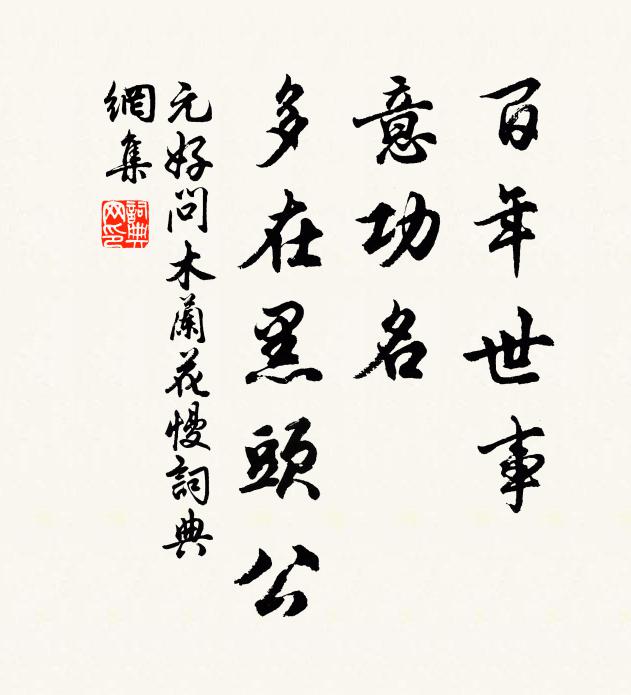 百年世事
意功名
多在黑頭公
元好問木蘭花慢詞典
網集
詞典網印